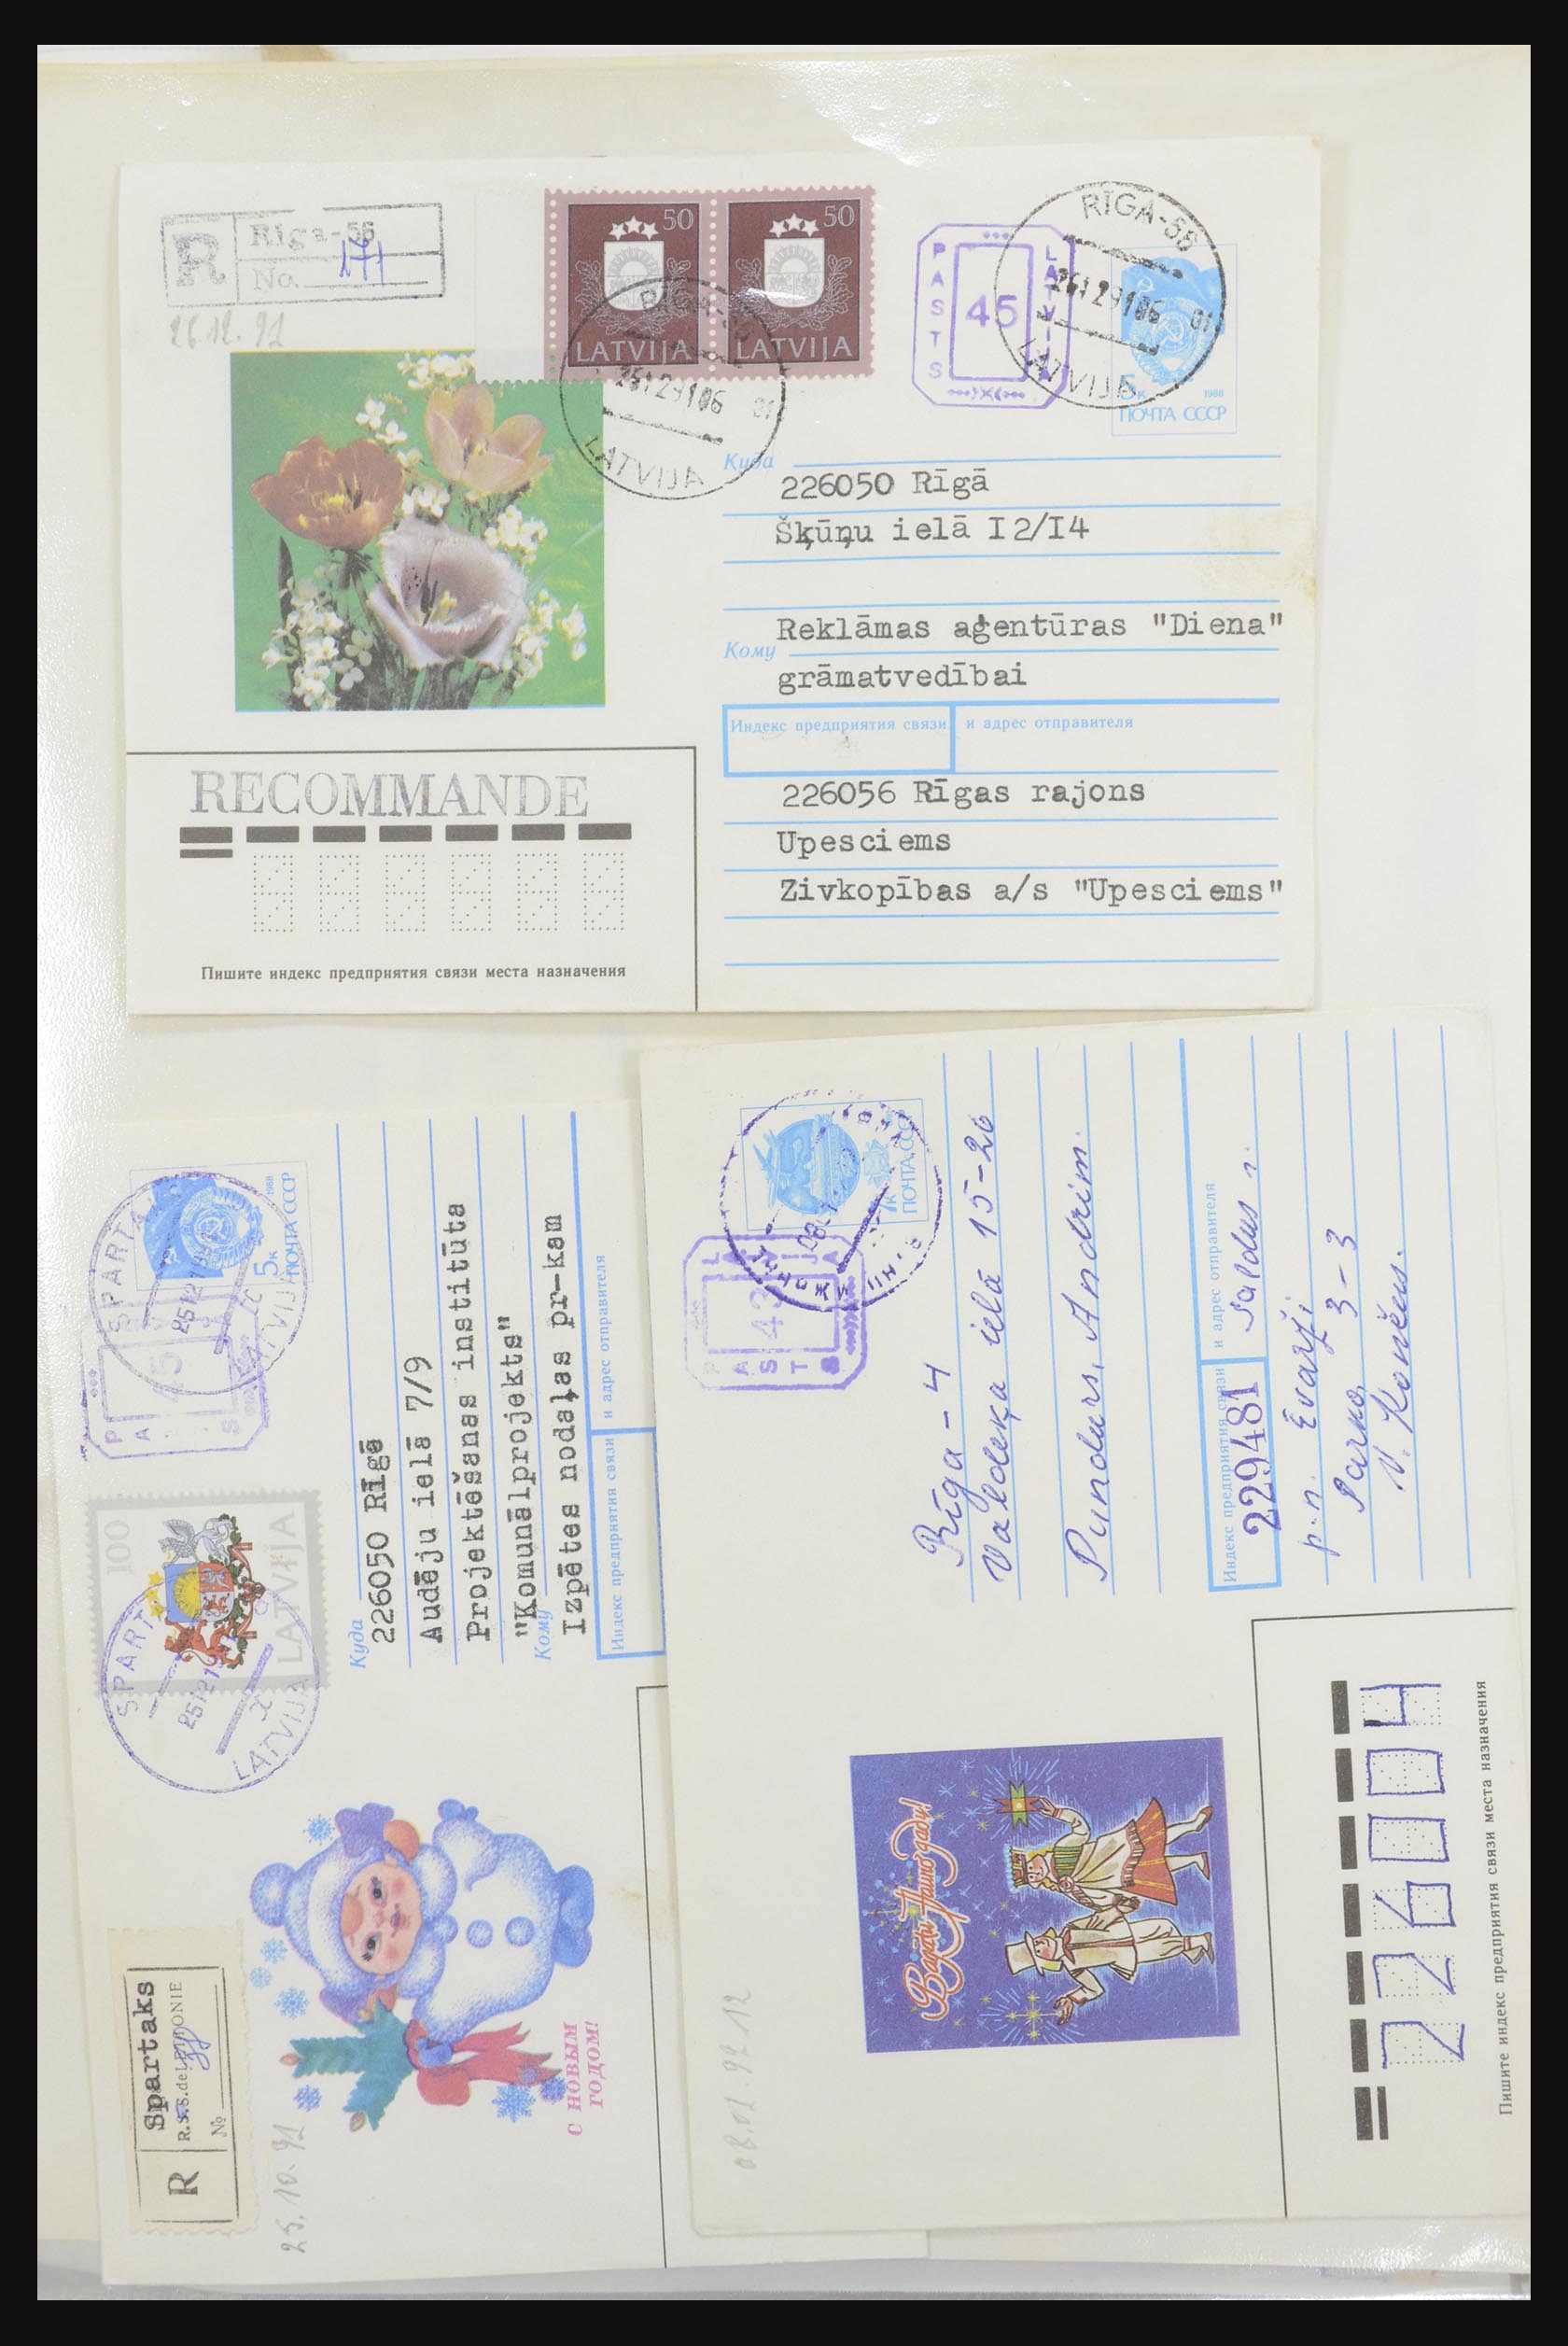 R
Rīga-56
No. 171
26.12.91
50
LATVIJA
50
LATVIJA
RĪGA-56
2612 9106
01
LATVIJA
PASTS
LATVIJA
45
RĪGA-56
2612 9106
01
LATVIJA
5к
1988
ПОЧТА СССР
Куда
226050 Rīgā
Šķūņu ielā I2/I4
Reklāmas aģentūras "Diena"
Кому
grāmatvedībai
Индекс предприятия связи и адрес отправителя
226056 Rīgas rajons
Upesciems
Zivkopības a/s "Upesciems"
RECOMMANDE
Пишите индекс предприятия связи места назначения
SPARTA
2512
LATVIJ
5к
1988
ПОЧТА СССР
PA S
45
100
LATVIJA
SPART
2512
LATVIJA
Куда
226050 Rīgā
Audēju ielā 7/9
Projektēšanas institūta
"Komunālprojekts"
Кому
Izpētes nodaļas pr-kam
Индекс предприятия связи и адрес отправителя
R
Spartaks
R.S.S.de LETTONIE
№
25.10.91
С НОВЫМ
ГОДОМ!
7к
ПОЧТА СССР
PASTS
LATVIJA
43
Rīga - 4
Valdeķa ielā 15-26
Pundurs, Andrim.
Индекс предприятия связи и адрес отправителя
229481 Saldus r.
p.n. Ēvarži
Parka 3-3
V. Končus.
Вaгаdи, Nauno gadu!
08.01.92.12
226004
Пишите индекс предприятия связи места назначения